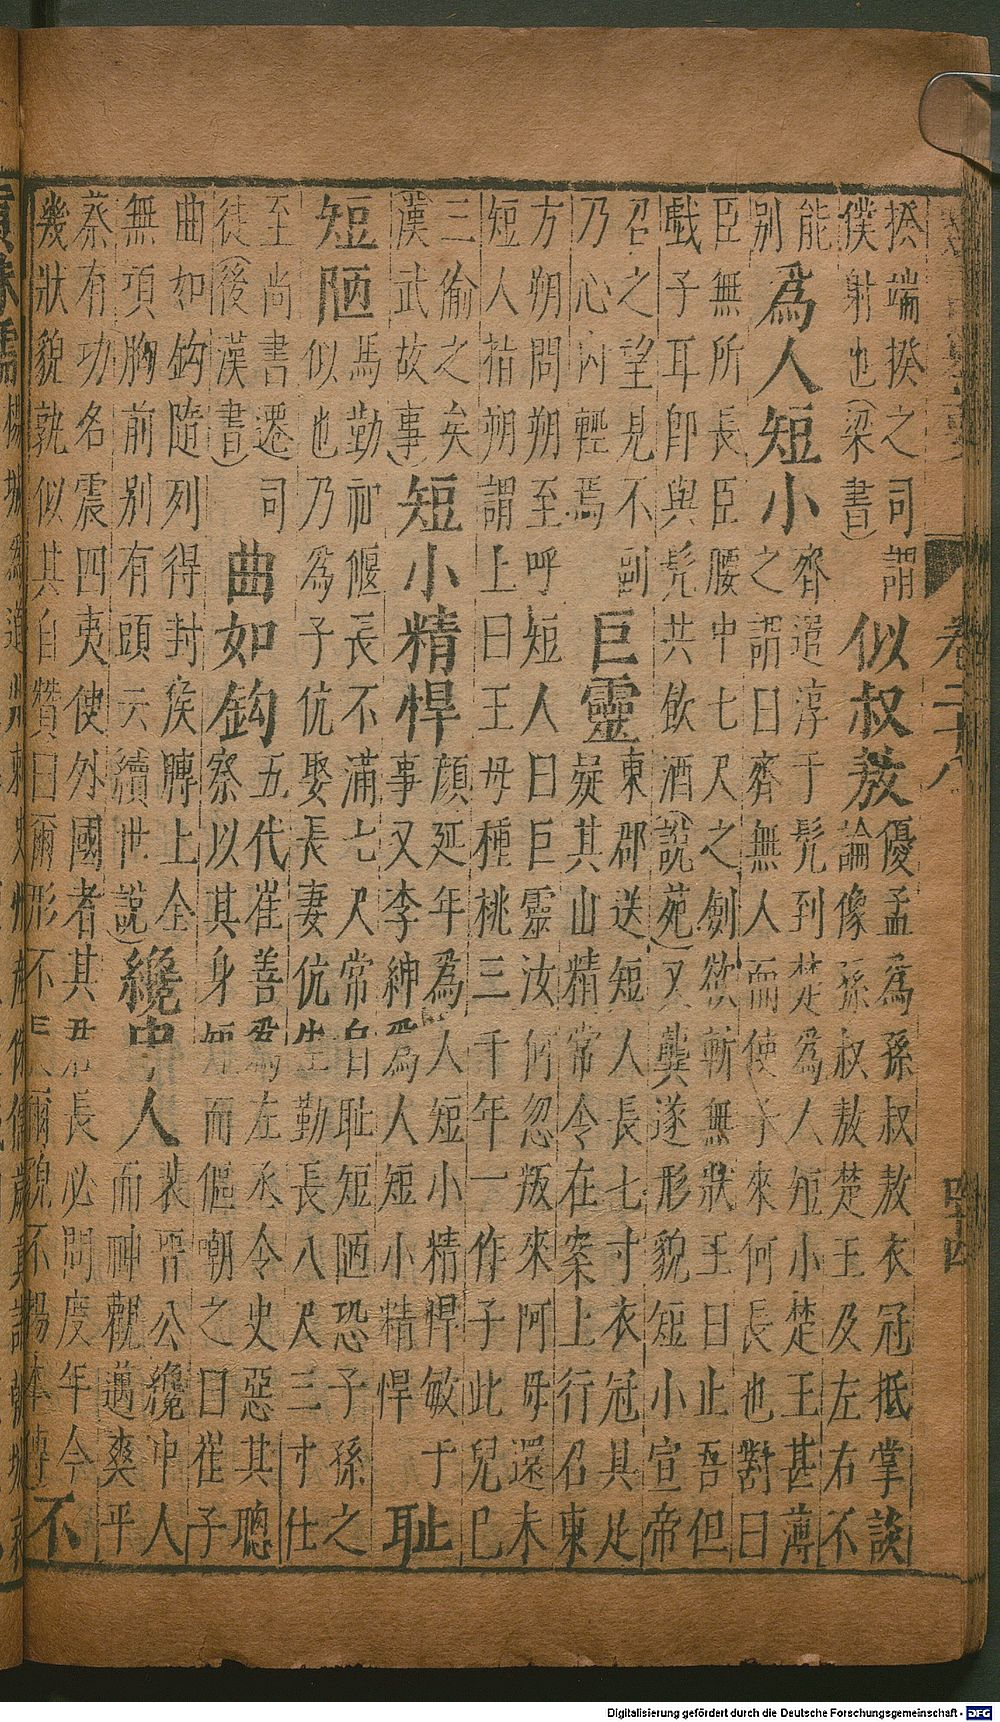 卷二十八
四十四
揆端揆之司謂
僕射也(梁書)
似叔敖
優孟為孫叔敖衣冠抵掌談
論像孫叔敖楚王及左右不
能
別
為人短小
齊遣淳于髠到楚為人短小楚王甚薄
之謂曰齊無人而使子來何長也對曰
臣無所長臣腰中七尺之劍欲斬無狀王曰止吾但
戲子耳即與髠共飲酒(說苑)又龔遂形貌短小宣帝
召之望見不副
乃心內輕焉
巨靈
東郡送短人長七寸衣冠具足
疑其山精常令在案上行召東
方朔問朔至呼短人曰巨靈汝何忽叛來阿母還未
短人指朔謂上曰王母種桃三千年一作子此兒已
三偷之矣
(漢武故事)
短小精悍
顏延年為人短小精悍敏于
事又李紳為人短小精悍
耻
短陋
馬勤祖偃長不滿七尺常自耻短陋恐子孫之
似也乃為子伉娶長妻伉生勤長八尺三寸仕
至尚書遷司
徒(後漢書)
曲如鈎
五代崔善為左丞令史惡其聰
察以其身短而傴嘲之曰崔子
曲如鈎隨列得封矦髀上全
無項胸前別有頭云續世說)
纔中人
裴晉公纔中人
而神觀邁爽平
蔡有功名震四夷使外國者其君長必問度年今
幾狀貌孰似其自贊曰爾形不長爾貌不揚本傳
不
Digitalisierung gefördert durch die Deutsche Forschungsgemeinschaft - DFG